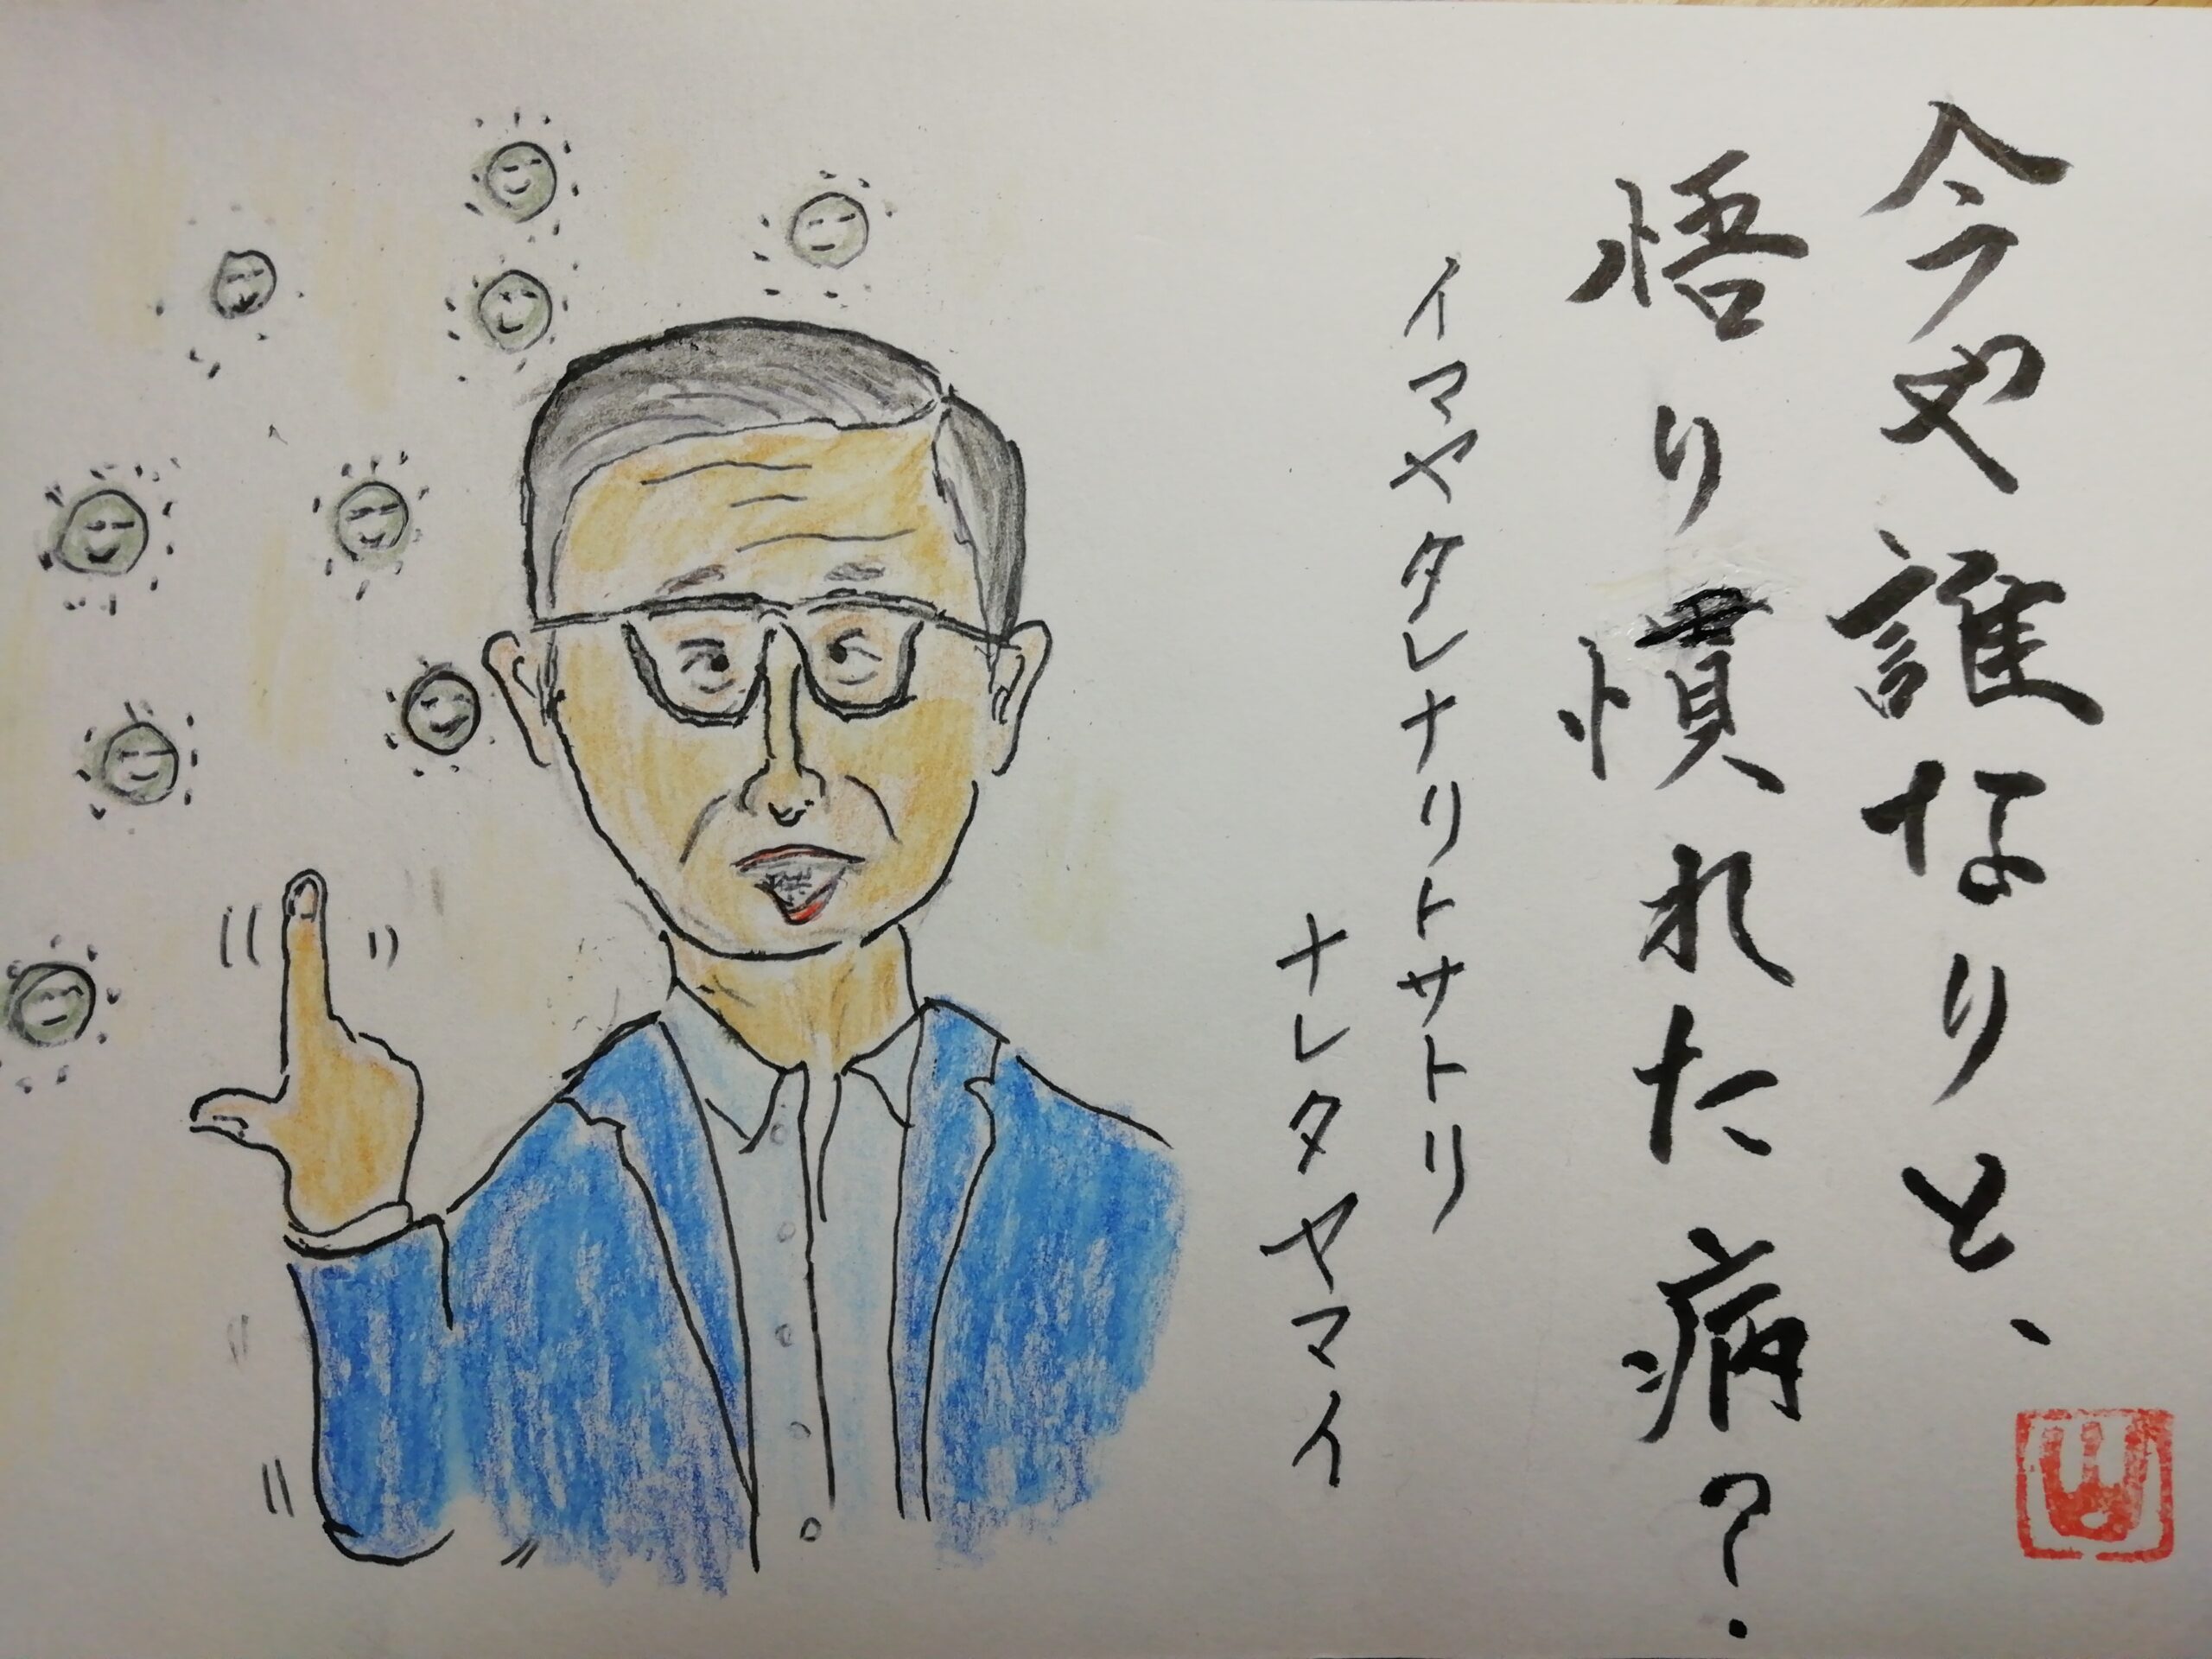 今や誰なりと、
悟り慣れた病？
イマヤタレナリトサトリ
ナレタヤマイ